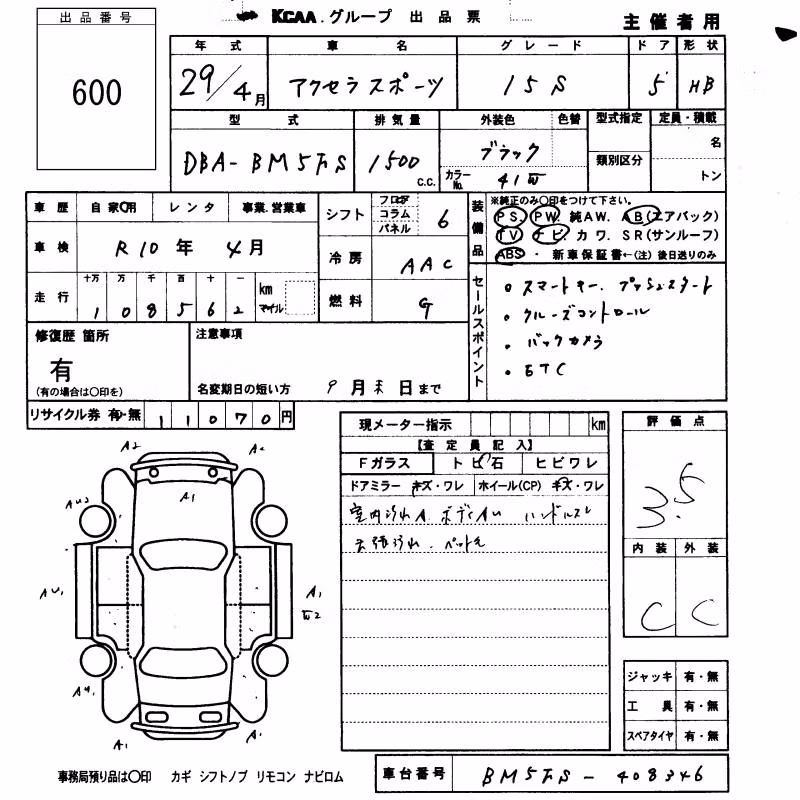 KCAA.グループ 出品票
主催者用
出品番号
600
年式 車名 グレード ドア 形状
29/4月 アクセラスポーツ 15S 5 HB
型式 排気量 外装色 色替 型式指定 定員・積載
DBA-BM5FS 1500 c.c. ブラック 名
カラーNo. 41W 類別区分 トン
車歴 自家用 レンタ 事業.営業車
車検 R10年 4月
走行 十万 万 千 百 十 一
1 0 8 5 6 2 km マイル
シフト フロア コラム パネル 6
冷房 AAC
燃料 G
装備品 ※純正のみ〇印をつけて下さい。
PS. PW 純AW. AB(エアバック)
TV ナビ. カワ. SR(サンルーフ)
ABS・ 新車保証書←(注)後日送りのみ
セールスポイント
・スマートキー. プッシュスタート
・クルーズコントロール
・バックカメラ
・ETC
修復歴 箇所
有
(有の場合は〇印を)
注意事項
名変期日の短い方 9月末日まで
リサイクル券 有・無 11070円
現メーター指示 km
【査定員記入】
Fガラス トビ石 ヒビワレ
ドアミラー キズ・ワレ ホイール(CP) キズ・ワレ
室内汚れA. ボディAU ハンドルスレ
天張汚れ.
評価点
3.5
内装 外装
C C
A2 A2
A1
AU2
AU1 A1
W2
AU1
A1 A1
ジャッキ 有・無
工具 有・無
スペアタイヤ 有・無
事務局預り品は〇印 カギ シフトノブ リモコン ナビロム
車台番号 BM5FS-408346